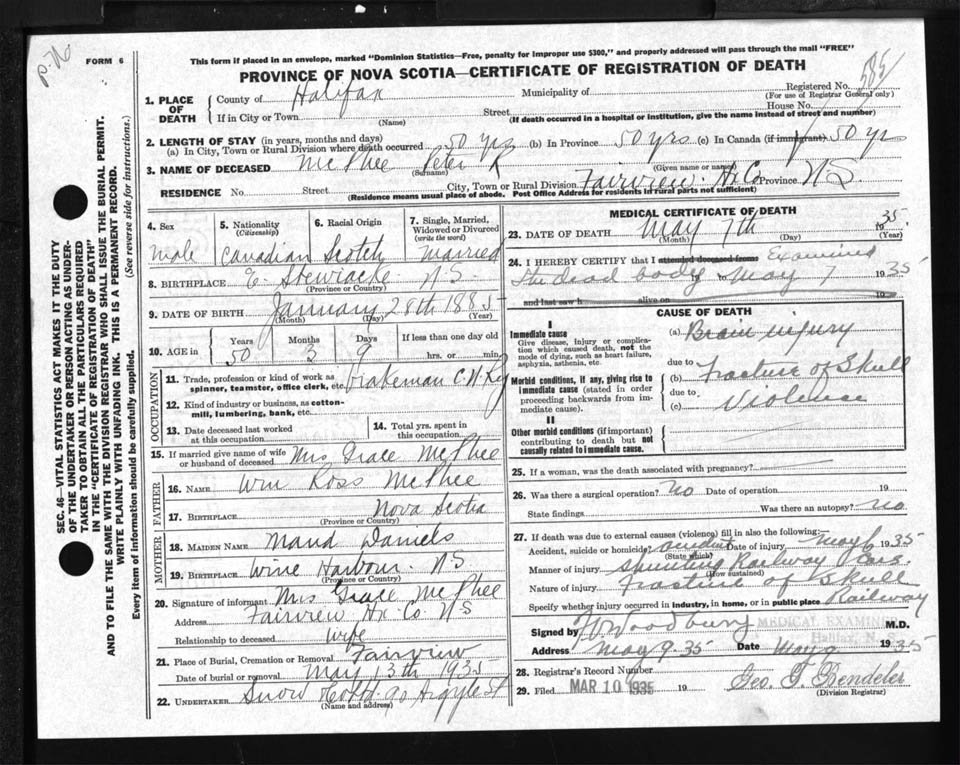 p-76
FORM 6
This form if placed in an envelope, marked "Dominion Statistics—Free, penalty for improper use $300," and properly addressed will pass through the mail "FREE"
PROVINCE OF NOVA SCOTIA—CERTIFICATE OF REGISTRATION OF DEATH
Registered No. 585
(For use of Registrar General only)
1. PLACE OF DEATH
County of Halifax Municipality of
If in City or Town Street House No.
(Name) (If death occurred in a hospital or institution, give the name instead of street and number)
2. LENGTH OF STAY (in years, months and days)
(a) In City, Town or Rural Division where death occurred 50 yrs (b) In Province 50 yrs (c) In Canada (if immigrant) 50 yrs
3. NAME OF DECEASED McPhee Peter R
(Surname) (Given name or names)
RESIDENCE No. Street City, Town or Rural Division Fairview Hx Co Province N.S.
(Residence means usual place of abode. Post Office Address for residents in rural parts not sufficient)
4. Sex
Male
5. Nationality
(Citizenship)
Canadian
6. Racial Origin
Scotch
7. Single, Married, Widowed or Divorced
(write the word)
Married
8. BIRTHPLACE E. Stewiacke N.S.
(Province or Country)
9. DATE OF BIRTH January 28th 1885
(Month) (Day) (Year)
10. AGE in
Years Months Days If less than one day old
50 3 9 hrs. or min.
OCCUPATION
11. Trade, profession or kind of work as
spinner, teamster, office clerk, etc. Brakeman C.N.Ry
12. Kind of industry or business, as cotton-
mill, lumbering, bank, etc.
13. Date deceased last worked
at this occupation
14. Total yrs. spent in
this occupation
15. If married give name of wife
or husband of deceased Mrs Grace McPhee
FATHER
16. NAME Wm Ross McPhee
17. BIRTHPLACE Nova Scotia
(Province or Country)
MOTHER
18. MAIDEN NAME Maud Daniels
19. BIRTHPLACE Wine Harbour N.S
(Province or Country)
20. Signature of informant Mrs Grace McPhee
Address Fairview Hx Co NS
Relationship to deceased wife
21. Place of Burial, Cremation or Removal Fairview
Date of burial or removal May 13th 1935
22. UNDERTAKER Snow Co Ltd. 90 Argyle St
(Name and address)
MEDICAL CERTIFICATE OF DEATH
23. DATE OF DEATH May 7th 1935
(Month) (Day) (Year)
24. I HEREBY CERTIFY that I attended deceased from Examined
the dead body to May 7 1935
and last saw h alive on 19
CAUSE OF DEATH
I
Immediate cause
Give disease, injury or complication which caused death, not the mode of dying, such as heart failure, asphyxia, asthenia, etc.
(a) Brain injury
due to
Morbid conditions, if any, giving rise to immediate cause (stated in order proceeding backwards from immediate cause).
(b) Fracture of Skull
due to
(c) Violence
II
Other morbid conditions (if important) contributing to death but not causally related to immediate cause.
25. If a woman, was the death associated with pregnancy?
26. Was there a surgical operation? no Date of operation 19
State findings Was there an autopsy? no
27. If death was due to external causes (violence) fill in also the following:—
Accident, suicide or homicide? accident Date of injury May 6 1935
(State which)
Manner of injury Shunting Railway Cars
(How sustained)
Nature of injury Fracture of Skull
Specify whether injury occurred in industry, in home, or in public place Railway
MEDICAL EXAMINER
Halifax, N. S.
Signed by Woodbury M.D.
Address May 9-35 Date May 9 1935
28. Registrar's Record Number
29. Filed MAR 10 1935 19 Geo. G. Bendeler
(Division Registrar)
SEC. 46—VITAL STATISTICS ACT MAKES IT THE DUTY
OF THE UNDERTAKER OR PERSON ACTING AS UNDER-
TAKER TO OBTAIN ALL THE PARTICULARS REQUIRED
IN THE "CERTIFICATE OF REGISTRATION OF DEATH"
AND TO FILE THE SAME WITH THE DIVISION REGISTRAR WHO SHALL ISSUE THE BURIAL PERMIT.
WRITE PLAINLY WITH UNFADING INK. THIS IS A PERMANENT RECORD.
Every item of information should be carefully supplied. (See reverse side for instructions.)